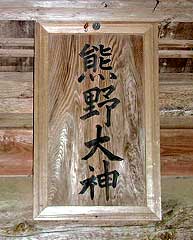 熊野大神